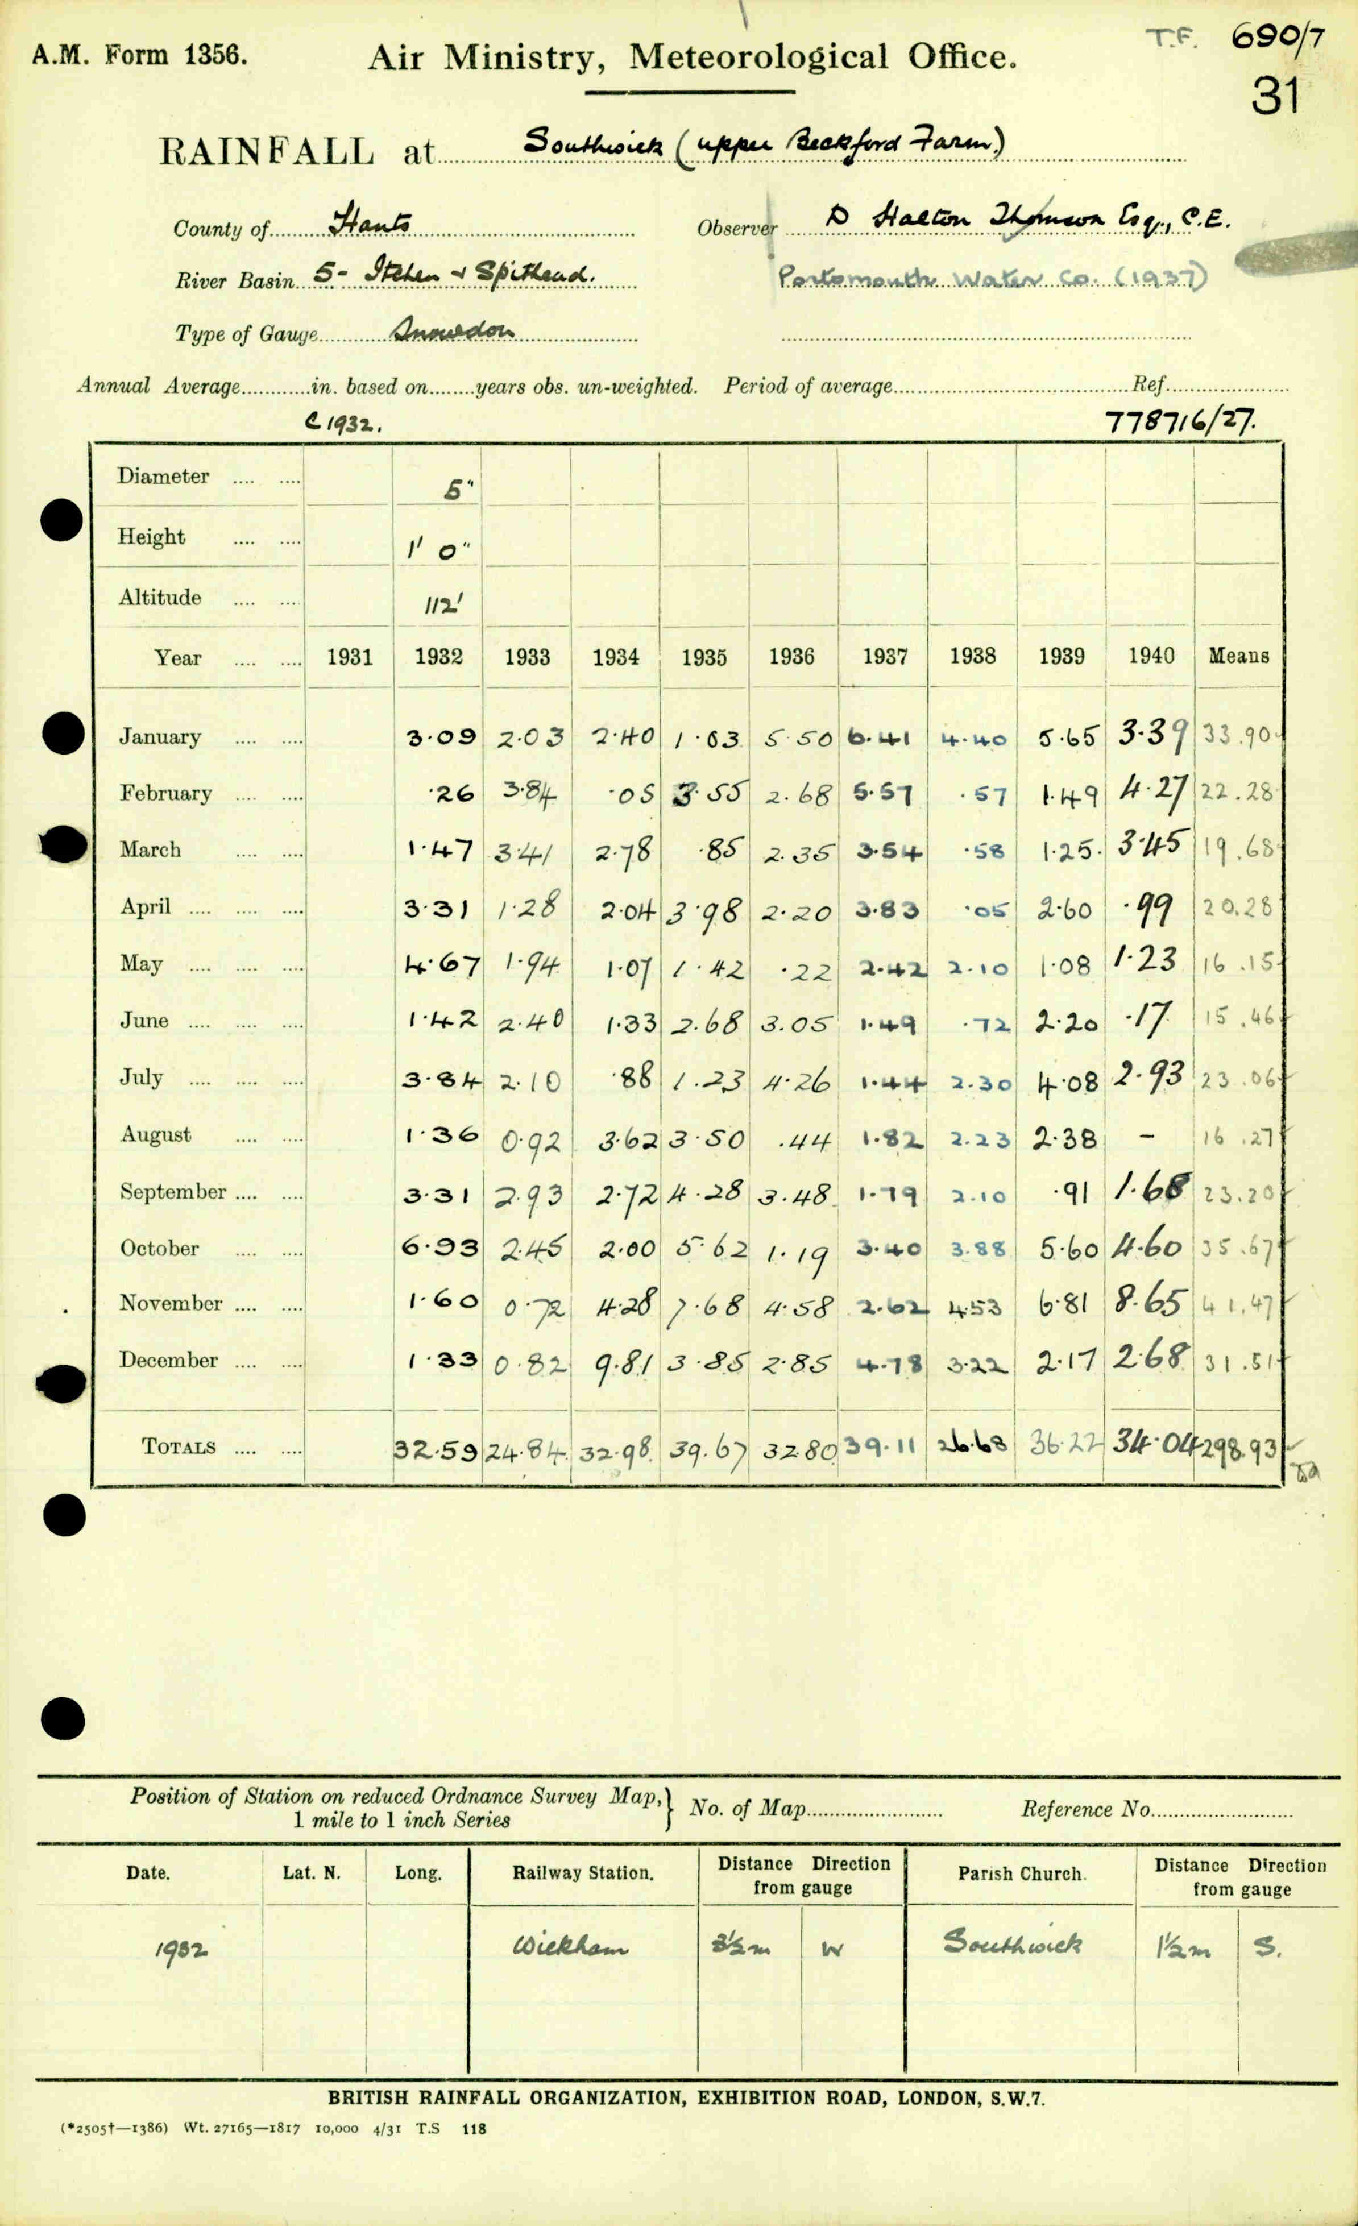 T.F. 690/7
A.M. Form 1356. Air Ministry, Meteorological Office.
31
RAINFALL at Southwick (upper Beckford Farm.)
County of Hants Observer D Halton Thomson Esq., C.E.
River Basin 5- Itchen & Spithead. Portsmouth Water Co. (1937)
Type of Gauge Snowdon
Annual Average in. based on years obs. un-weighted. Period of average Ref.
C 1932. 778716/27.
Diameter 5"
Height 1' 0"
Altitude 112'
Year 1931 1932 1933 1934 1935 1936 1937 1938 1939 1940 Means
January 3.09 2.03 2.40 1.03 5.50 6.41 4.40 5.65 3.39 33.90
February .26 3.84 .05 3.55 2.68 5.57 .57 1.49 4.27 22.28
March 1.47 3.41 2.78 .85 2.35 3.54 .58 1.25 3.45 19.68
April 3.31 1.28 2.04 3.98 2.20 3.83 .05 2.60 .99 20.28
May 4.67 1.94 1.07 1.42 .22 2.42 2.10 1.08 1.23 16.15
June 1.42 2.40 1.33 2.68 3.05 1.49 .72 2.20 .17 15.46
July 3.84 2.10 .88 1.23 4.26 1.44 2.30 4.08 2.93 23.06
August 1.36 0.92 3.62 3.50 .44 1.82 2.23 2.38 - 16.27
September 3.31 2.93 2.72 4.28 3.48 1.79 2.10 .91 1.68 23.20
October 6.93 2.45 2.00 5.62 1.19 3.40 3.88 5.60 4.60 35.67
November 1.60 0.72 4.28 7.68 4.58 2.62 4.53 6.81 8.65 41.47
December 1.33 0.82 9.81 3.85 2.85 4.78 3.22 2.17 2.68 31.51
TOTALS 32.59 24.84 32.98 39.67 32.80 39.11 26.68 36.22 34.04 298.93
Position of Station on reduced Ordnance Survey Map,
1 mile to 1 inch Series } No. of Map Reference No.
Date. Lat. N. Long. Railway Station. Distance Direction from gauge Parish Church. Distance Direction from gauge
1932 Wickham 3½m W Southwick 1½m S.
BRITISH RAINFALL ORGANIZATION, EXHIBITION ROAD, LONDON, S.W.7.
(*2505†—1386) Wt. 27165—1817 10,000 4/31 T.S 118